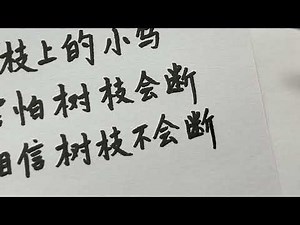 枝上的小鸟
害怕树枝会断
相信树枝不会断